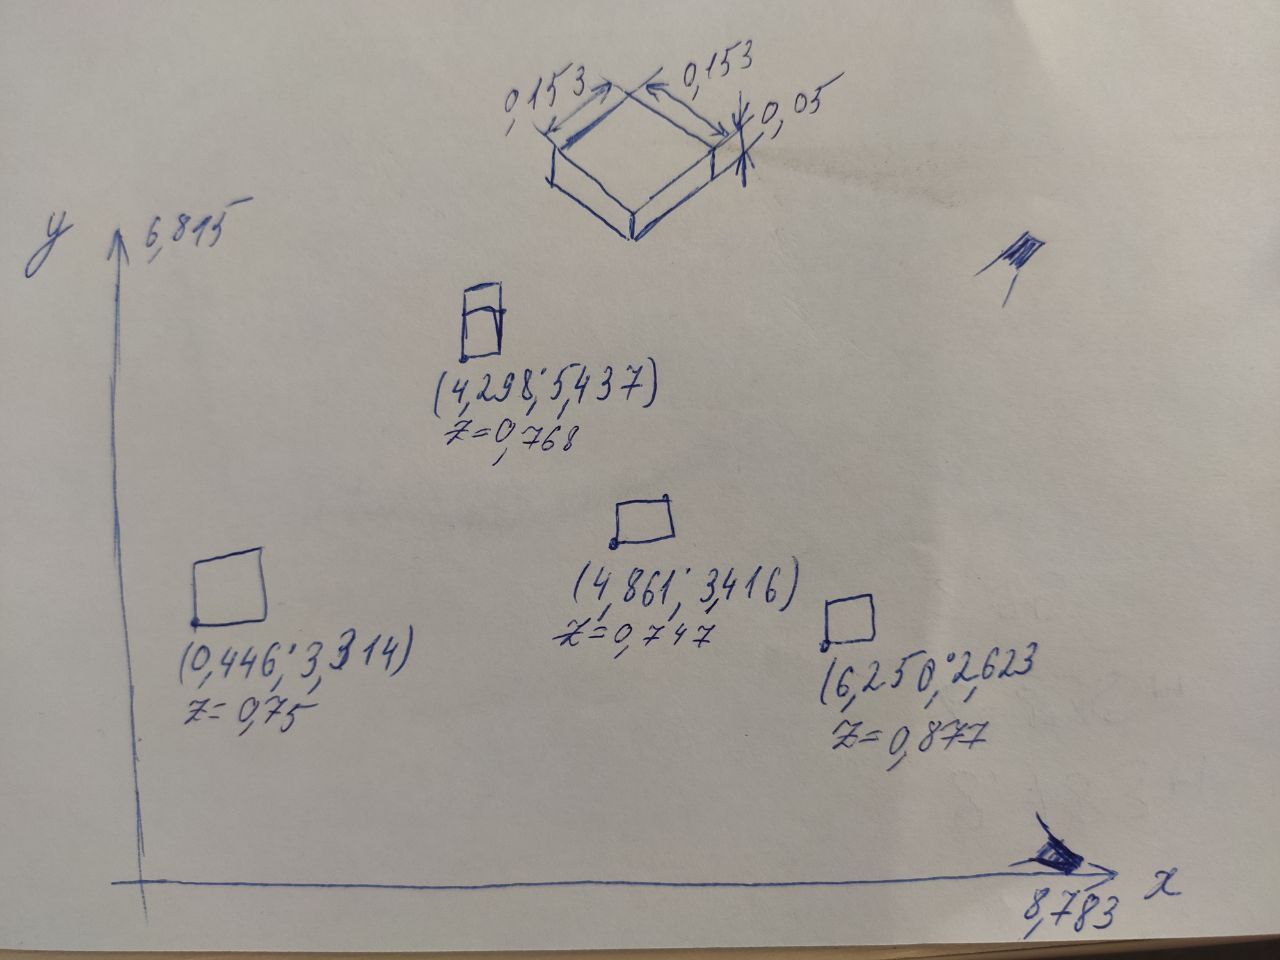 0,153
0,153
0,05
y
6,815
(4,298; 5,437)
z=0,768
(4,861; 3,416)
z=0,747
(0,446; 3,314)
z=0,75
(6,250; 2,623
z=0,877
x
8,783